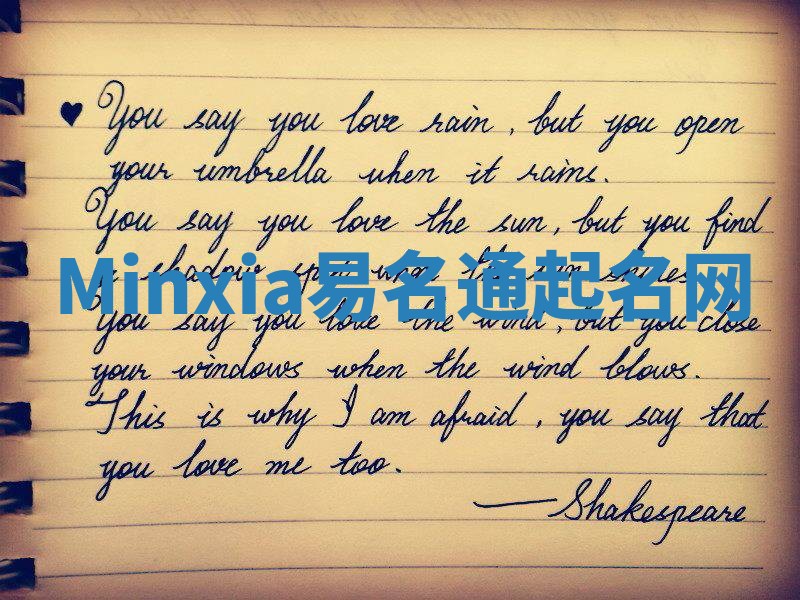 ♥ You say you love rain, but you open
your umbrella when it rains.
You say you love the sun, but you find
a shadow spot when the sun shines.
Minxia易名通起名网
You say you love the wind, but you close
your windows when the wind blows.
This is why I am afraid, you say that
you love me too.
—Shakespeare